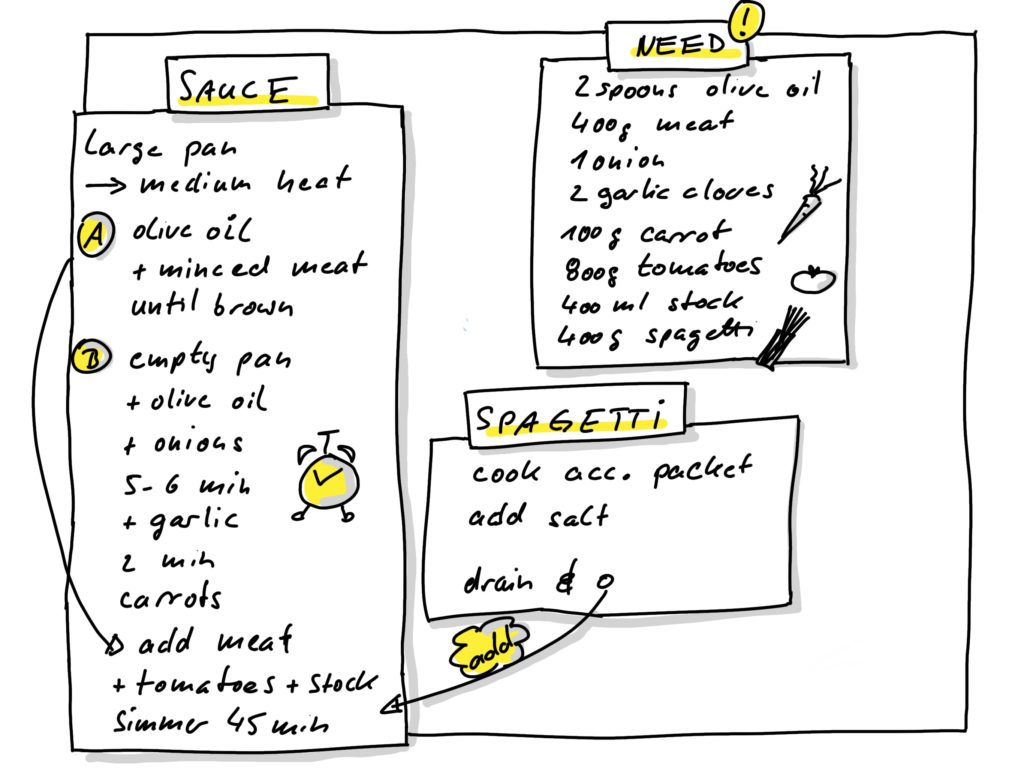 SAUCE
Large pan
→ medium heat
A olive oil
+ minced meat
until brown
B empty pan
+ olive oil
+ onions
5-6 min
+ garlic
2 min
carrots
add meat
+ tomatoes + stock
simmer 45 min
NEED !
2 spoons olive oil
400g meat
1 onion
2 garlic cloves
100g carrot
800g tomatoes
400 ml stock
400g spagetti
SPAGETTI
cook acc. packet
add salt
drain &
add